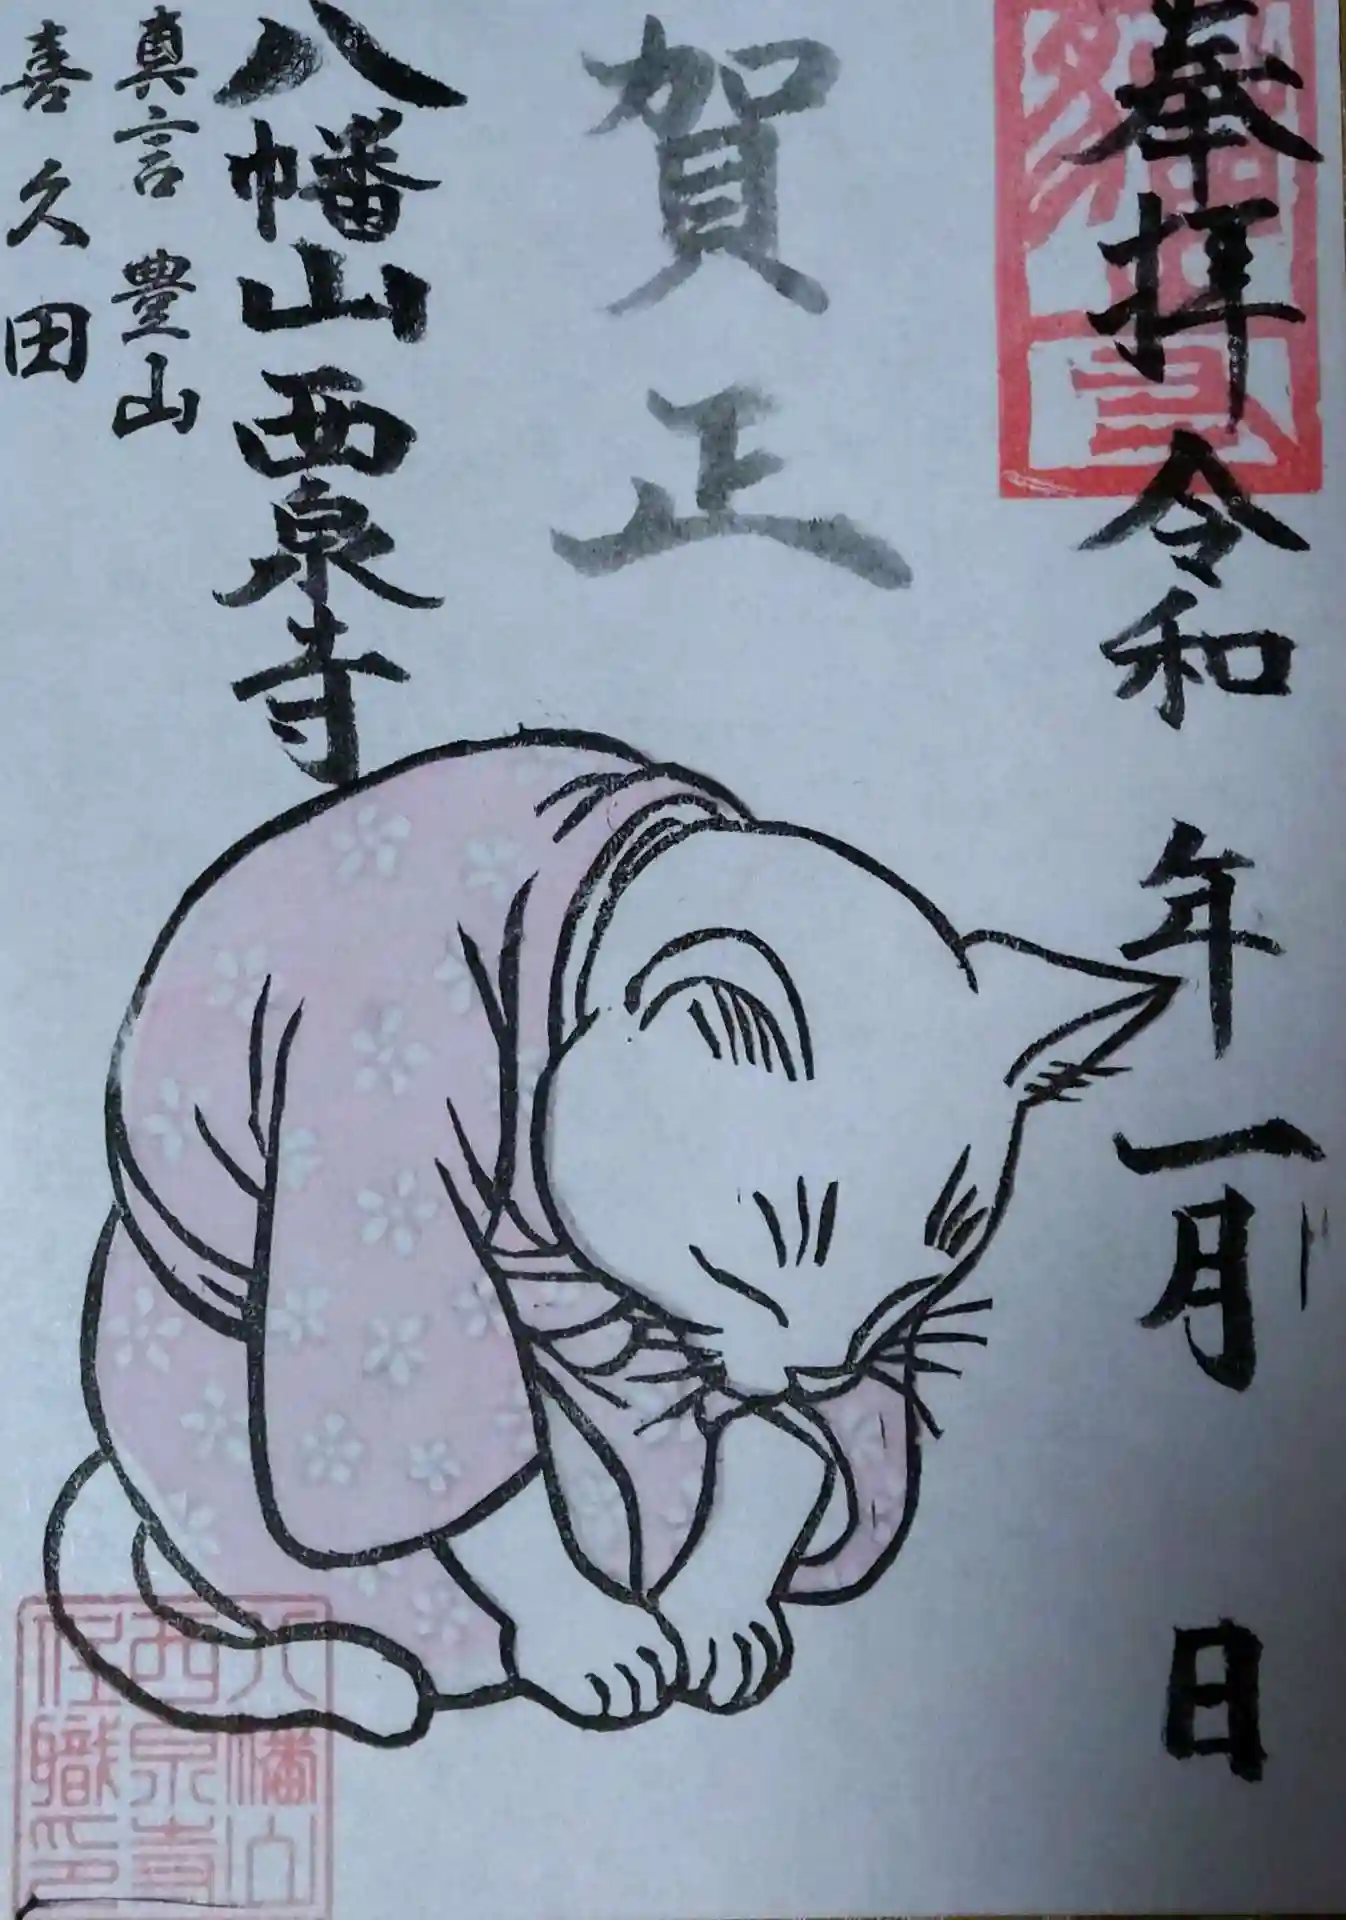 奉拝 令和 年一月 日
賀正
八幡山西泉寺
真言 豊山
喜久田
八幡山
西泉寺
住職印